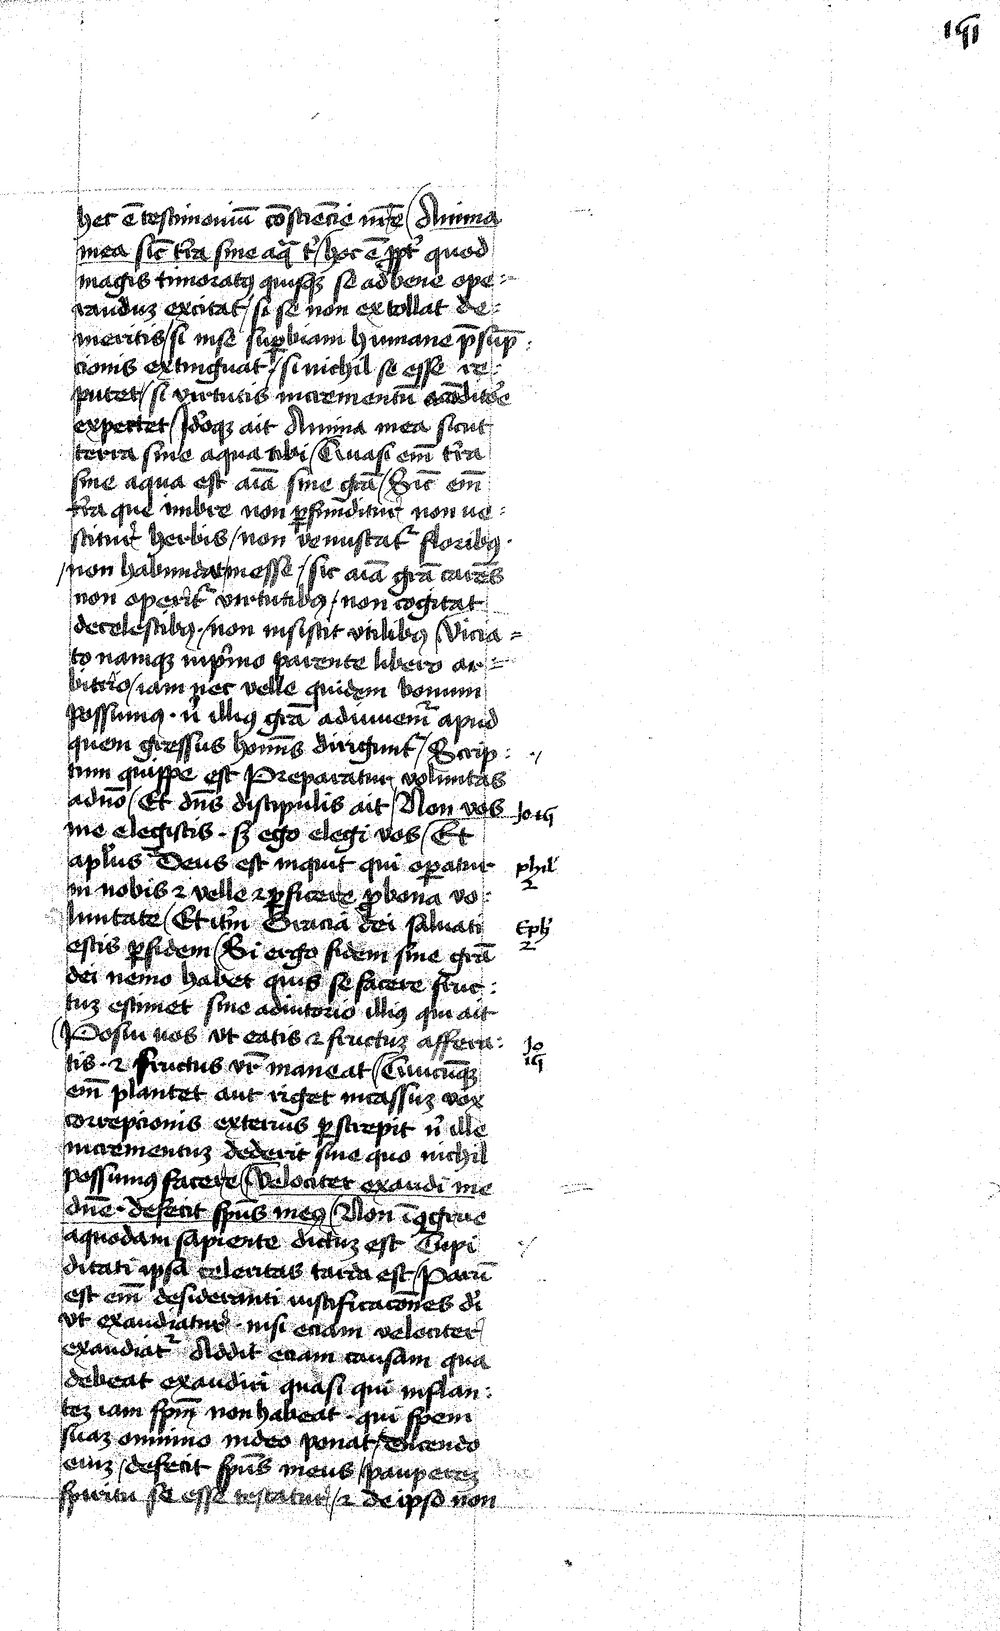 191
hec ē testimoniū cōsciēcie nr̄e Anima
mea sic̄ tr̄a sine aq̄ t' hoc ē ꝓpt' quod
magis timoratꝰ quisqꝫ se ad bene ope
randuꝫ excitat / si se non extollat de
meritis / si in se suꝑbiam humane p̄sūp
cionis extinguat / si nichil se esse re
putet / si virtutis incrementū
expectet / Idōqꝫ ait Anima mea sicut
terra sine aqua tibi / Quasi em̄ tr̄a
sine aqua est aīa sine grā / Sic̄ em̄
tr̄a que imbre non ꝑfunditur non ue
stitur herbis / non venustat' floribꝰ
/ non habundat messe / sic aīa grā carēs
non operit' virtutibꝰ / non cogitat
de celestibꝰ / non insistit vtilibꝰ / Vicia
to namqꝫ in p'mo parente libero ar
bitrio / iam nec velle quidem bonum
possumꝰ · n' illiꝰ grā adiuuem' apud
quem gressus homīs dirigunt' / Scrip
tum quippe est Preparatur voluntas
a dn̄o / Et dn̄s discipulis ait / Non vos
me elegistis · sꝫ ego elegi vos / Et
apl'us Deus est inquit qui oꝑatur
in nobis ⁊ velle ⁊ ꝑficere ꝓ bona vo
luntate / Et it'm Gracia dei saluati
estis ꝑ fidem / Si ergo fidem sine grā
dei nemo habet quis se facere fruc
tuꝫ estimet sine adiutorio illiꝰ qui ait
/ Posui uos vt eatis ⁊ fructuꝫ affera
tis · ⁊ fructus vr̄ maneat / Quicūqꝫ
em̄ plantet aut riget incassuꝫ vox
correpcionis exterius ꝑstrepit n' ille
incrementuꝫ dederit sine quo nichil
possumꝰ facere / Velociter exaudi me
dn̄e · defecit sp̄us meꝰ / Non īcōgrue
a quodam sapiente dictuꝫ est Cupi
ditati ipsa celeritas tarda est / Parū
est em̄ desideranti iustificacōnes dī
vt exaudiatur · nisi eciam velociter
exaudiat' Addit eciam causam qua
debeat exaudiri quasi qui inflan
teꝫ iam sp̄m non habeat · qui spem
suaꝫ omnino in deo ponat / dicendo
enīꝫ / defecit sp̄us meus / paupereꝫ
spiritu se esse testatur / ⁊ de ipso non
Jo 15
phil'
2
Eph'
2
Jo
15